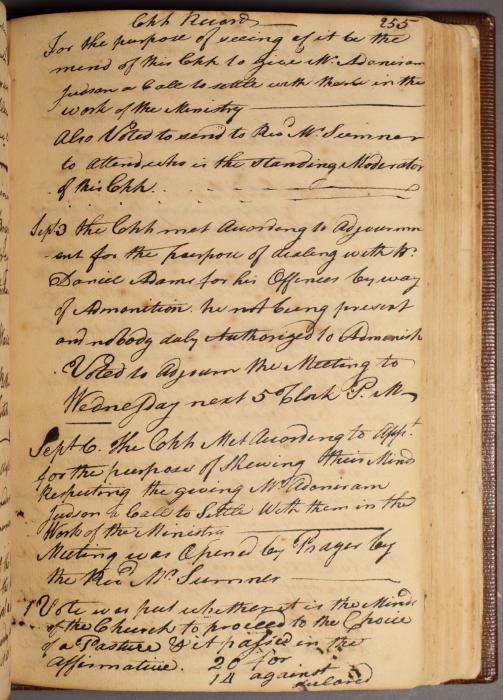 Chh Records 255
For the purpose of seeing if it be the
mind of this Chh to give Mr. Adoniram
Judson a Call to settle with them in the
work of the Ministry
Also Voted to send to Revd Mr. Sumner
to attend who is the standing Moderator
of this Chh.
Sept. 3 the Chh met According to Adjournm
-ent for the purpose of dealing with Br.
Daniel Adams for his Offences by way
of Admonition. he not being present
and nobody duly Authorized to Admonish
. Voted to Adjourn the Meeting to
Wednesday next 5 oClock P. M.
Sept. 6. The Chh Met According to Appt.
for the purpose of Shewing their Mind
Respecting the giving Mr. Adoniram
Judson a Call to Settle With them in the
Work of the Ministry
Meeting was Opened by Prayer by
the Revd Mr. Sumner
1 Vote was put whether it is the Minds
of the Church to proceed to the Choice
of a Pasture & it passed in the
affirmative. 20 for
14 against